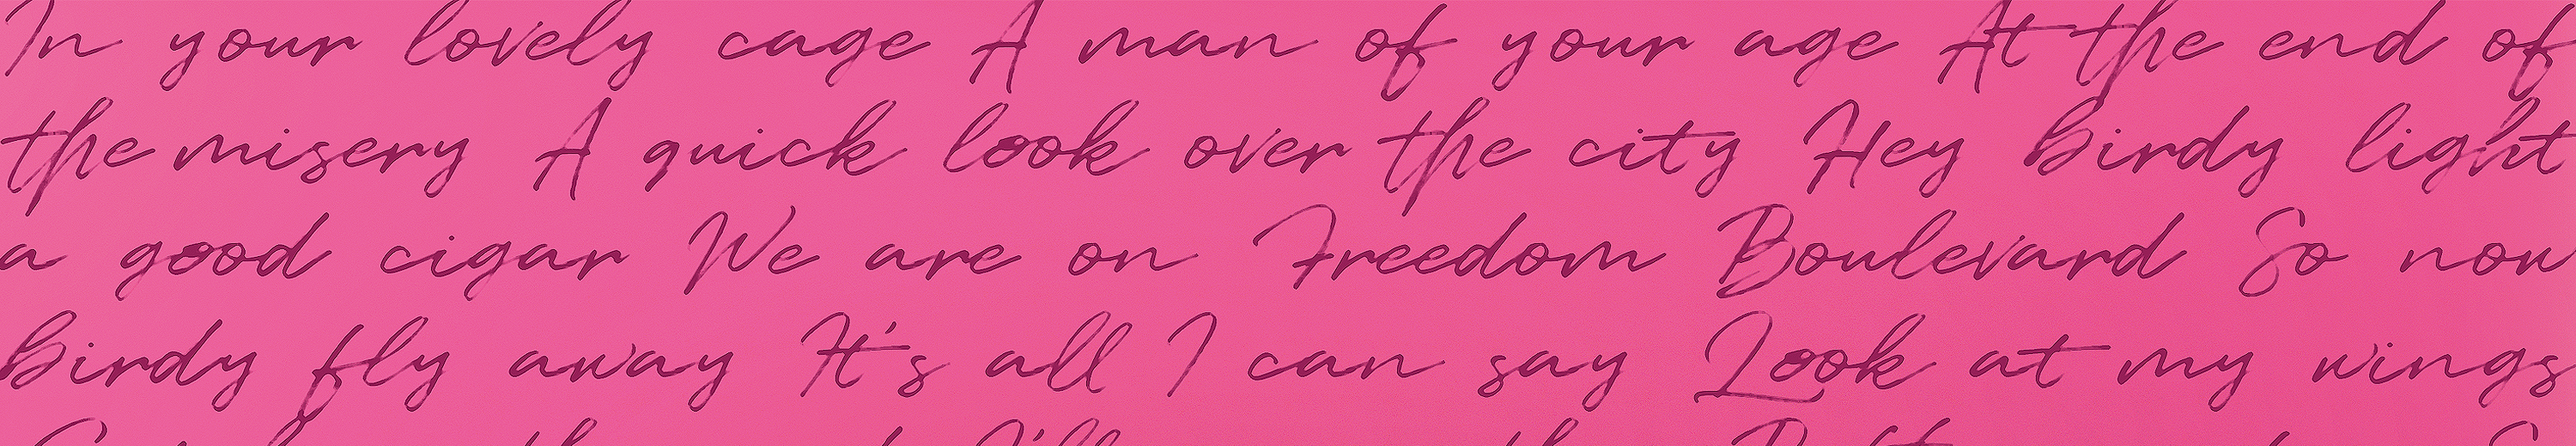 In your lovely cage A man of your age At the end of
the misery A quick look over the city Hey birdy light
a good cigar We are on Freedom Boulevard So now
birdy fly away It's all I can say Look at my wings